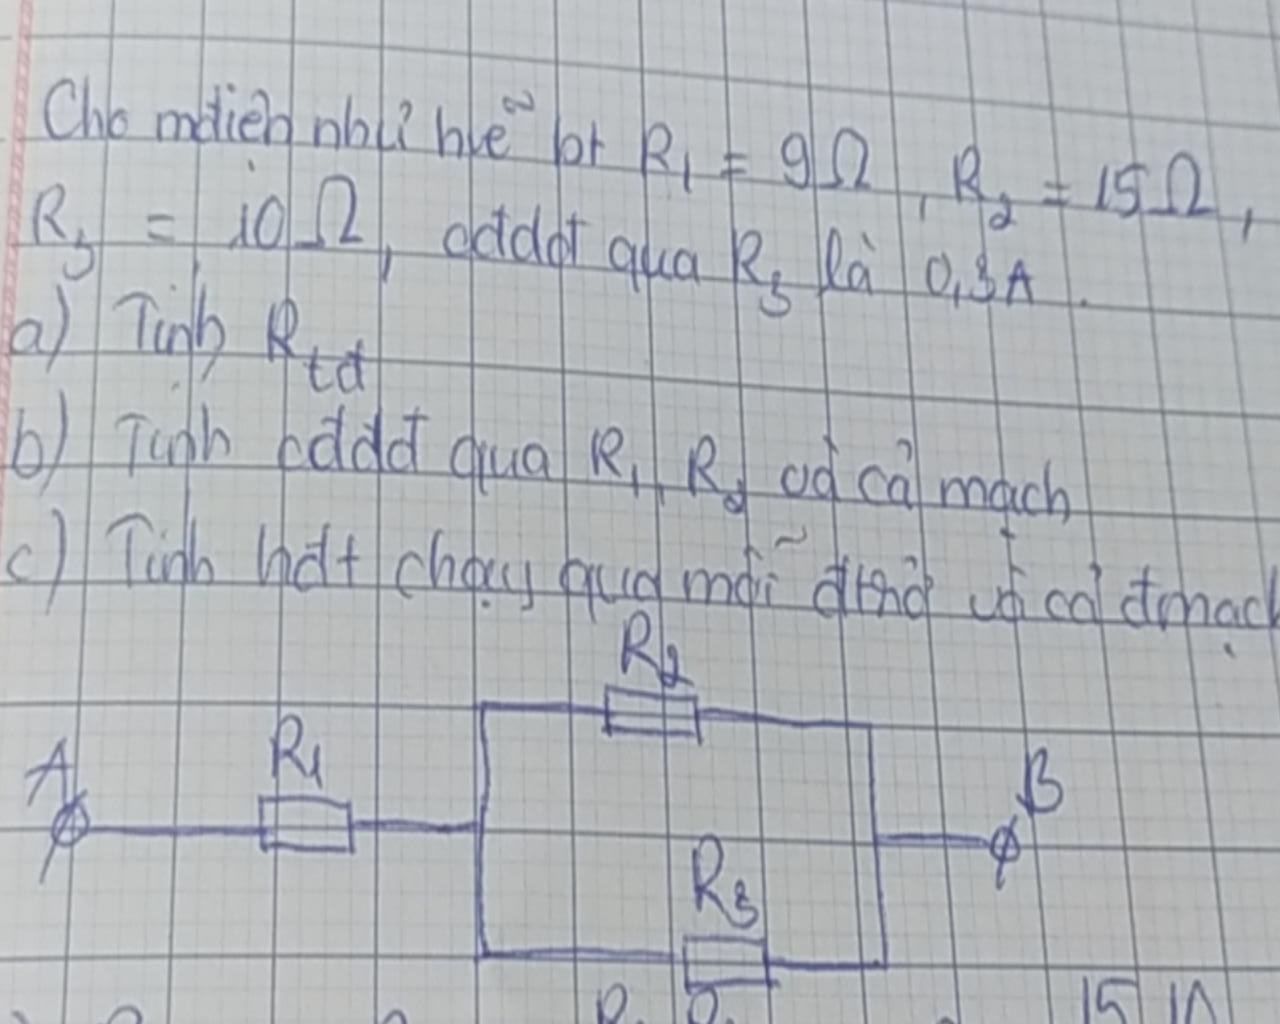 Cho mđiện như hvẽ bt R₁ = 9Ω, R₂ = 15Ω,
R₃ = 10Ω, cđdđ qua R₃ là 0,3A.
a) Tính Rtđ
b) Tính cđdđ qua R₁, R₂ và cả mạch
c) Tính hđt chạy qua mỗi đtrở và cả đmạch
R₂
A R₁ B
R₃
15 10